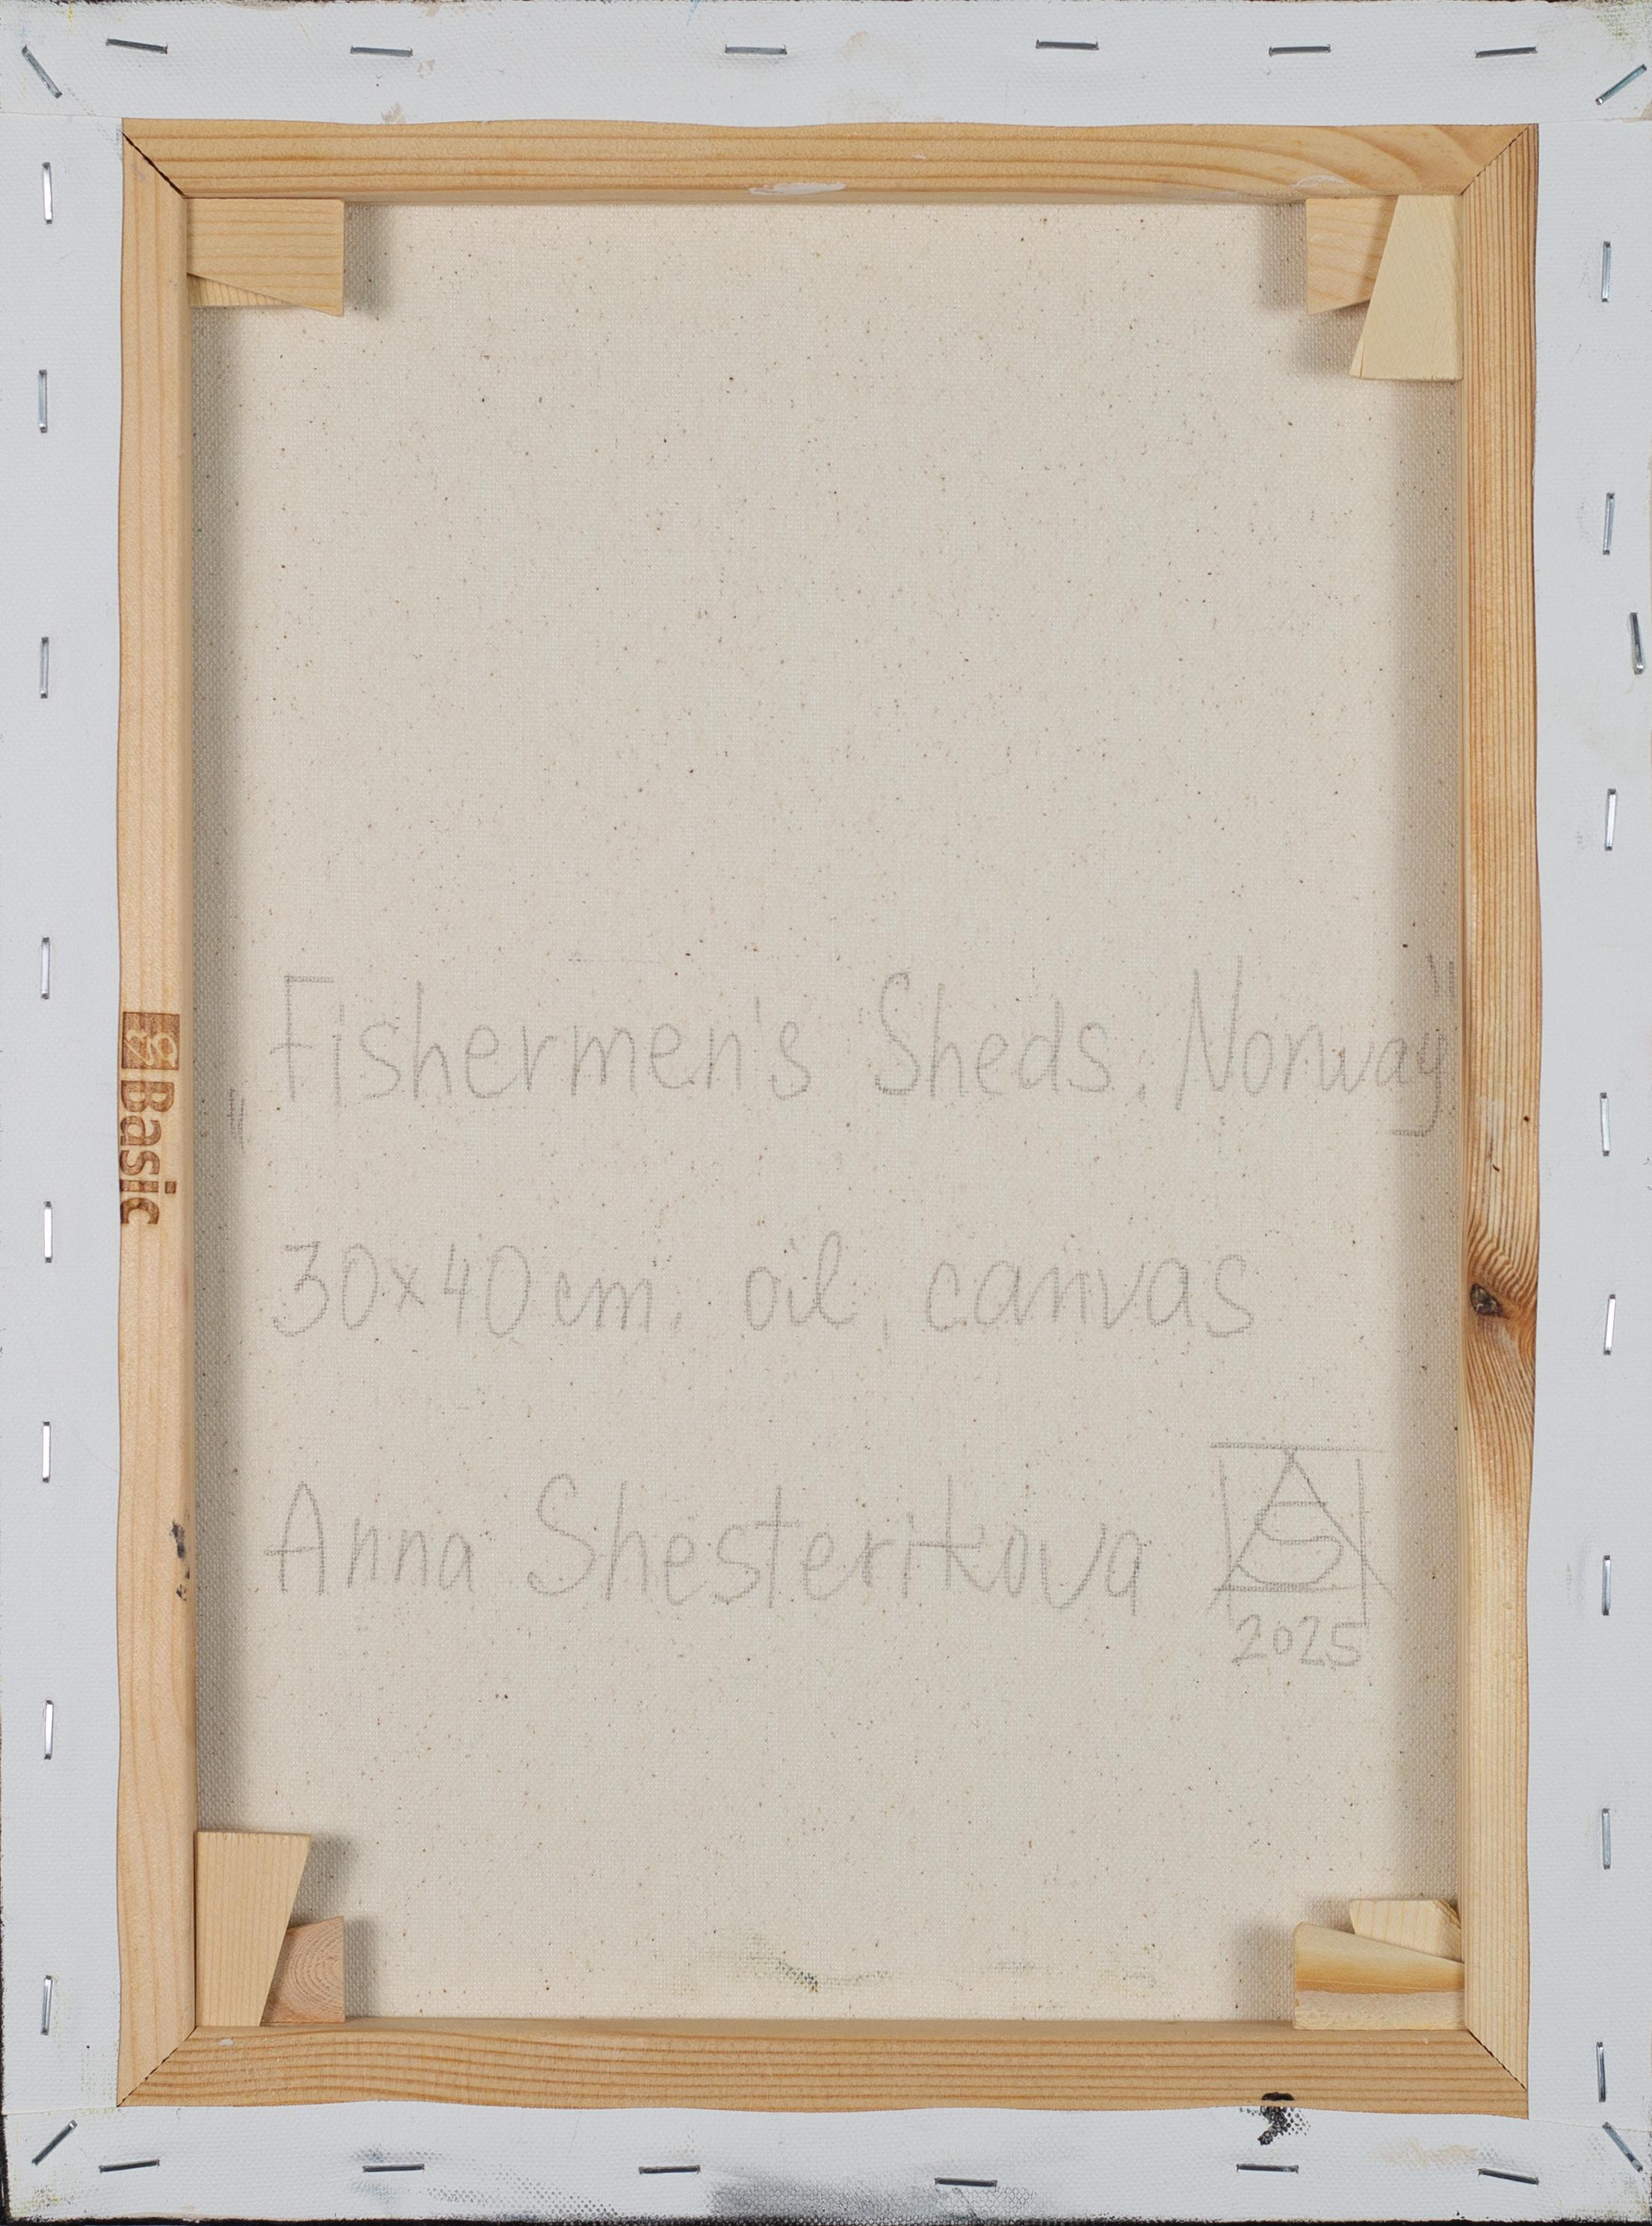 „Fishermen's Sheds. Norway"
30x40cm. oil, canvas
Anna Shesterikova
2025
Basic